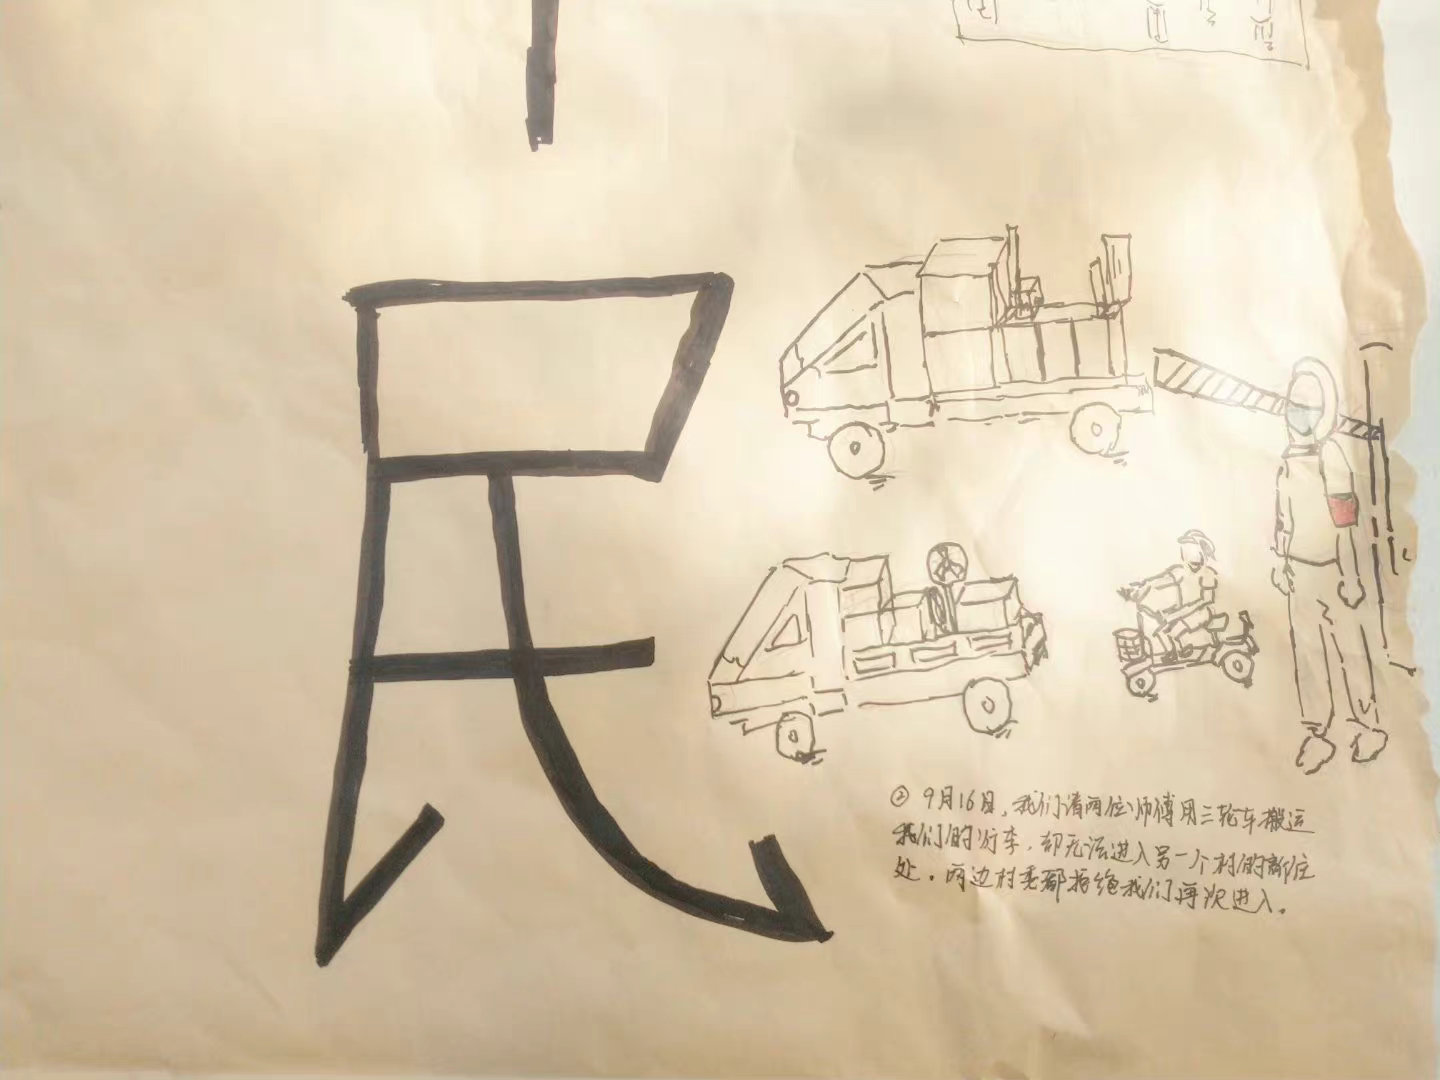 民
② 9月16日，我们请两位师傅用三轮车搬运
我们的行李，却无法进入另一个村的新住
处。两边村委都拒绝我们再次进入。